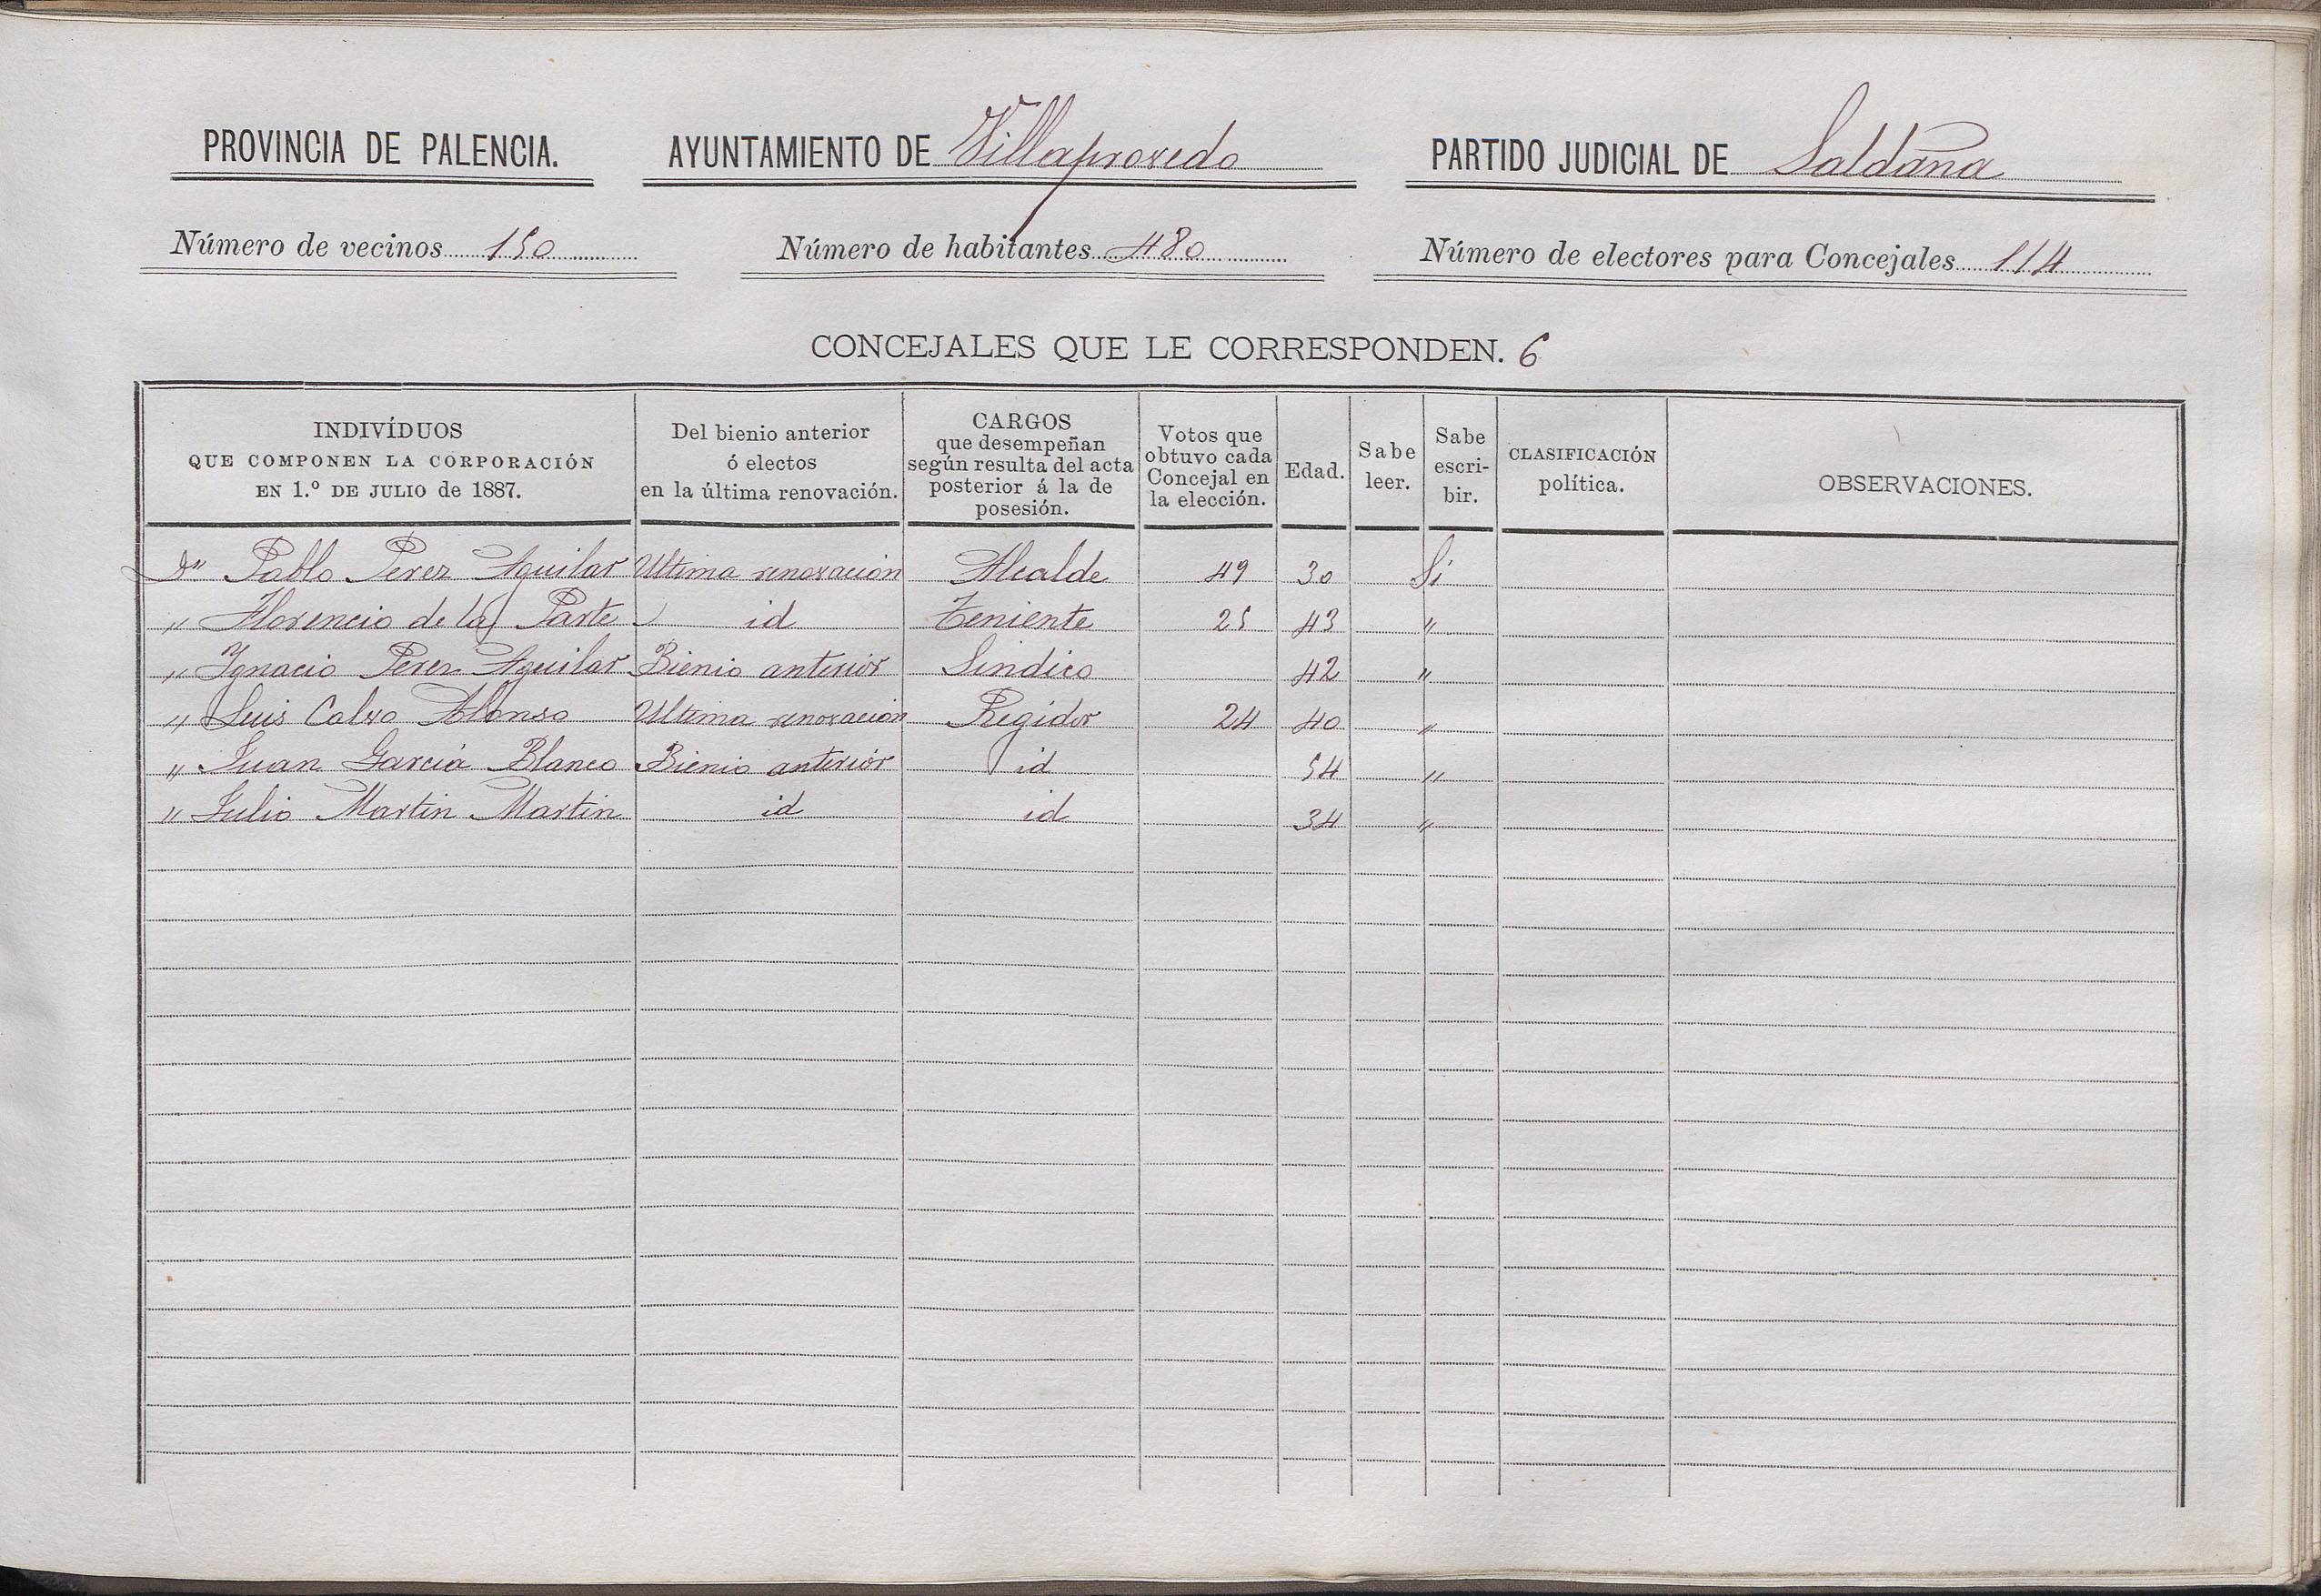 PROVINCIA DE PALENCIA. AYUNTAMIENTO DE Villaprovedo PARTIDO JUDICIAL DE Saldaña
Número de vecinos 150 Número de habitantes 480 Número de electores para Concejales 114
CONCEJALES QUE LE CORRESPONDEN. 6
INDIVÍDUOS
QUE COMPONEN LA CORPORACIÓN
EN 1.º DE JULIO de 1887.
Del bienio anterior
ó electos
en la última renovación.
CARGOS
que desempeñan
según resulta del acta
posterior á la de
posesión.
Votos que
obtuvo cada
Concejal en
la elección.
Edad.
Sabe
leer.
Sabe
escri-
bir.
CLASIFICACIÓN
política.
OBSERVACIONES.
Dn Pablo Perez Aguilar Ultima renovación Alcalde 49 30 Si
" Florencio de la Parte id Teniente 25 43 "
" Ygnacio Perez Aguilar Bienio anterior Sindico 42 "
" Luis Calvo Alonso Ultima renovación Regidor 24 40 "
" Juan García Blanco Bienio anterior id 54 "
" Julio Martin Martin id id 34 "